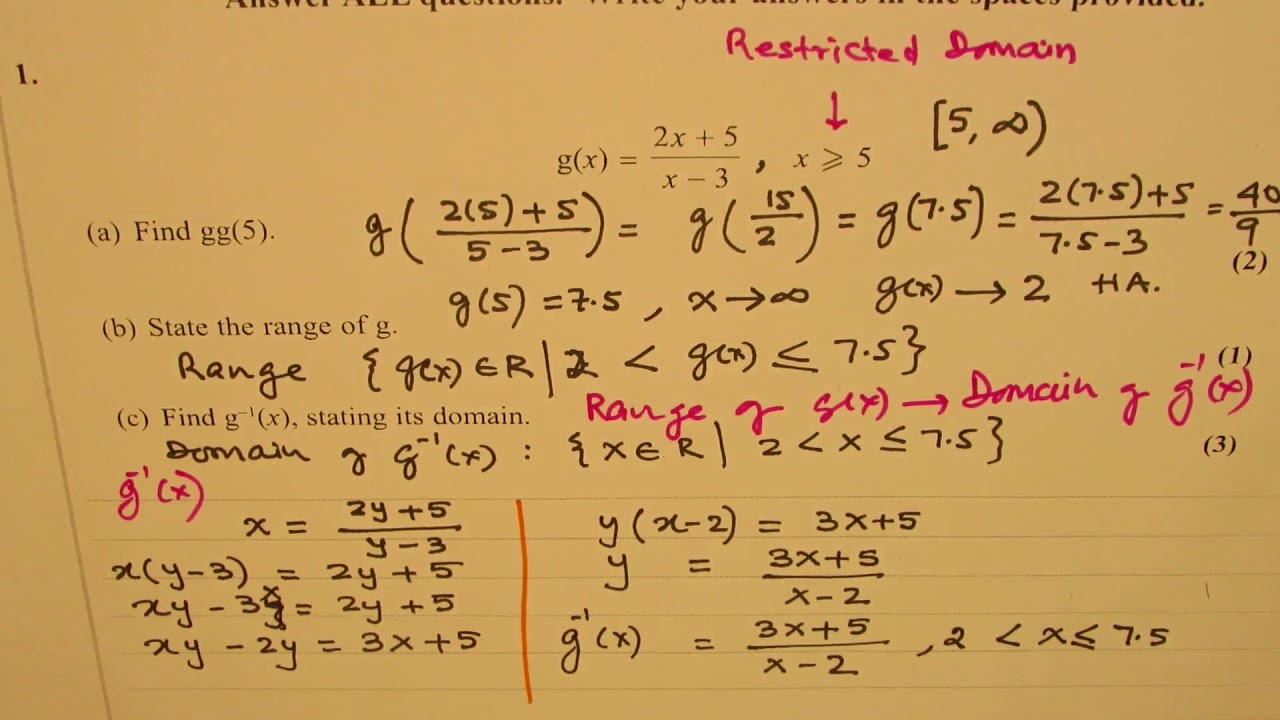 Answer ALL questions. Write your answers in the spaces provided.
Restricted Domain
1.
↓
g(x) = (2x + 5)/(x − 3) , x ⩾ 5 [5, ∞)
(a) Find gg(5). g( (2(5)+5)/(5−3) ) = g( 15/2 ) = g(7.5) = (2(7.5)+5)/(7.5−3) = 40/9
(2)
g(5) = 7.5 , x → ∞ g(x) → 2 HA.
(b) State the range of g.
Range {g(x) ∈ R | 2 < g(x) ≤ 7.5}
(1)
(c) Find g⁻¹(x), stating its domain. Range of g(x) → Domain of g⁻¹(x)
Domain of g⁻¹(x) : {x ∈ R | 2 < x ≤ 7.5}
(3)
g⁻¹(x)
x = (2y+5)/(y−3)
x(y−3) = 2y+5
xy − 3x = 2y+5
xy − 2y = 3x+5
y(x−2) = 3x+5
y = (3x+5)/(x−2)
g⁻¹(x) = (3x+5)/(x−2) , 2 < x ≤ 7.5